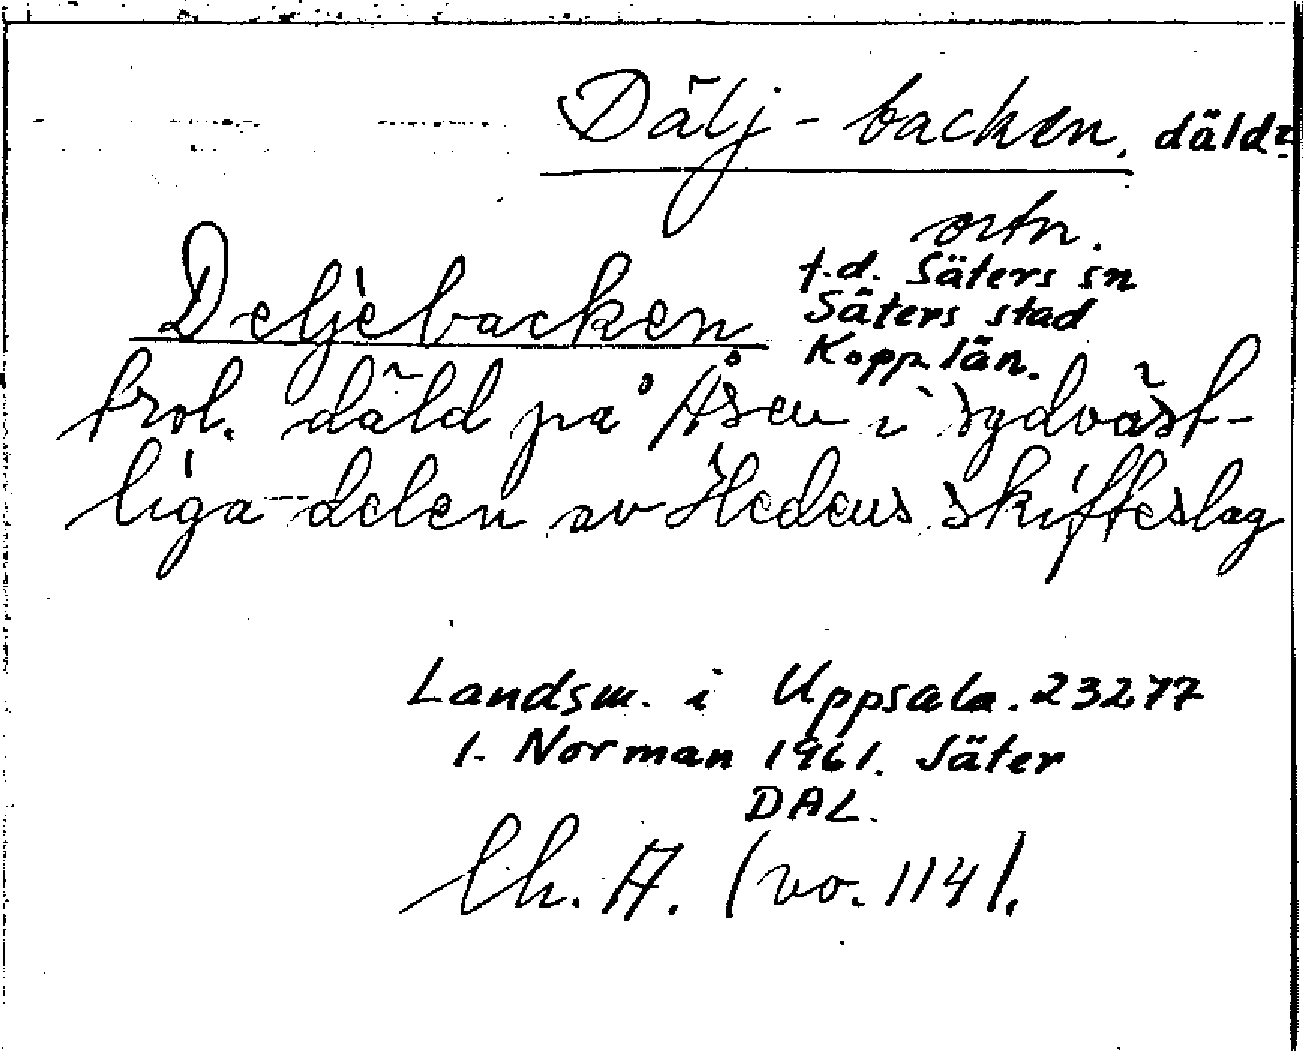 Dälj-backen, däld?
ortn.
f.d. Säters sn
Säters stad
Kopp. län.
Deljebacken
trol. däld på Åsen i sydväst-
liga delen av Hedens skifteslag
Landsm. i Uppsala. 23277
I. Norman 1961. Säter
DAL.
Ch. A. (vo. 114).